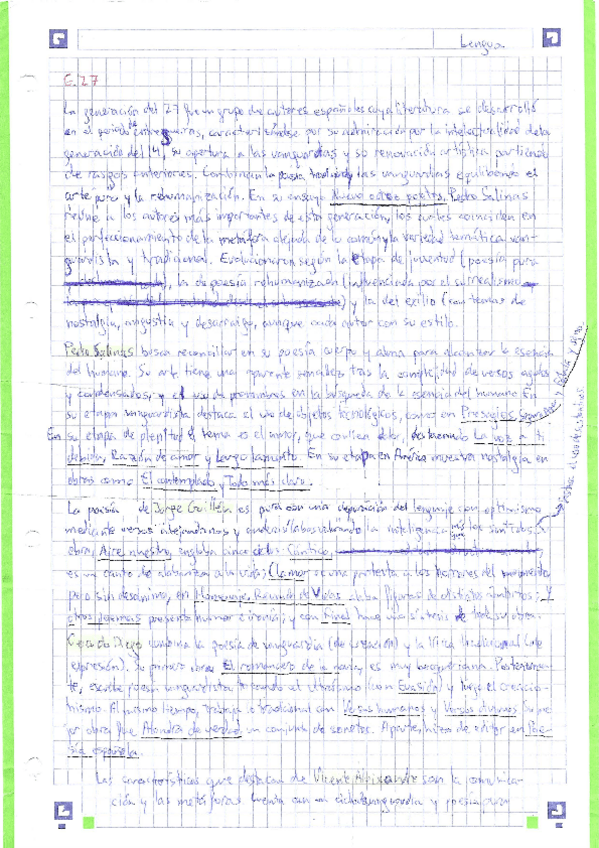 Lengua
G.27
La generación del 27 fue un grupo de autores españoles cuya literatura se desarrolló
en el periodo de entreguerras, caracterizándose por su admiración por la intelectualidad de la
generación del 14, su apertura a las vanguardias y su renovación artística partiendo
de rasgos anteriores. Combinan la poesía tradicional y las vanguardias equilibrando el
arte puro y la rehumanización. En su ensayo Nueve o diez poetas, Pedro Salinas
reúne a los autores más importantes de esta generación, los cuales coinciden en
el perfeccionamiento de la metáfora alejada de lo común y la variedad temática van-
guardista y tradicional. Evolucionaron según la etapa de juventud (poesía pura
), la de poesía rehumanizada (influenciada por el surrealismo
) y la del exilio (con temas de
nostalgia, angustia y desarraigo, aunque cada autor con su estilo.
Pedro Salinas busca reconciliar en su poesía cuerpo y alma para alcanzar la esencia
del humano. Su arte tiene una aparente sencillez tras la complicidad de versos
y condensados, y el uso de pronombres en la búsqueda de la esencia del humano. En
su etapa vanguardista destaca el uso de objetos tecnológicos, como en Presagios, Seguro azar y Fábula y signo.
En su etapa de plenitud el tema es el amor, que conlleva dolor, destacando La voz a ti
debida, Razón de amor y Largo lamento. En su etapa en América muestra nostalgia en
obras como El contemplado y Todo más claro.
La poesía de Jorge Guillén es pura con una depuración del lenguaje con optimismo
mediante versos
obra, Aire nuestro, engloba cinco ciclos: Cántico,
es un canto de alabanza a la vida; Clamor es una protesta a los horrores del
pero sin desánimo, en Homenaje, Reunión de Vidas alaba figuras de distintos ámbitos; Y
otros poemas presenta humor e ironía; y con Final hace una síntesis de toda su obra.
Gerardo Diego combina la poesía de vanguardia (de creación) y la lírica tradicional (de
expresión). Su primera obra El romancero de la novia, es muy becqueriana. Posteriormen-
te, escribe poesía vanguardista tocando el ultraísmo (con Evasión) y luego el creacio-
nismo. Al mismo tiempo, trabaja lo tradicional con Versos humanos y Versos divinos. Su me-
jor obra fue Alondra de verdad un conjunto de sonetos. Aparte, hizo de editor en Poe-
sía española.
Las características que destacan de Vicente Aleixandre son la comunica-
ción y las metáforas. Cuenta con un ciclo y poesía pura